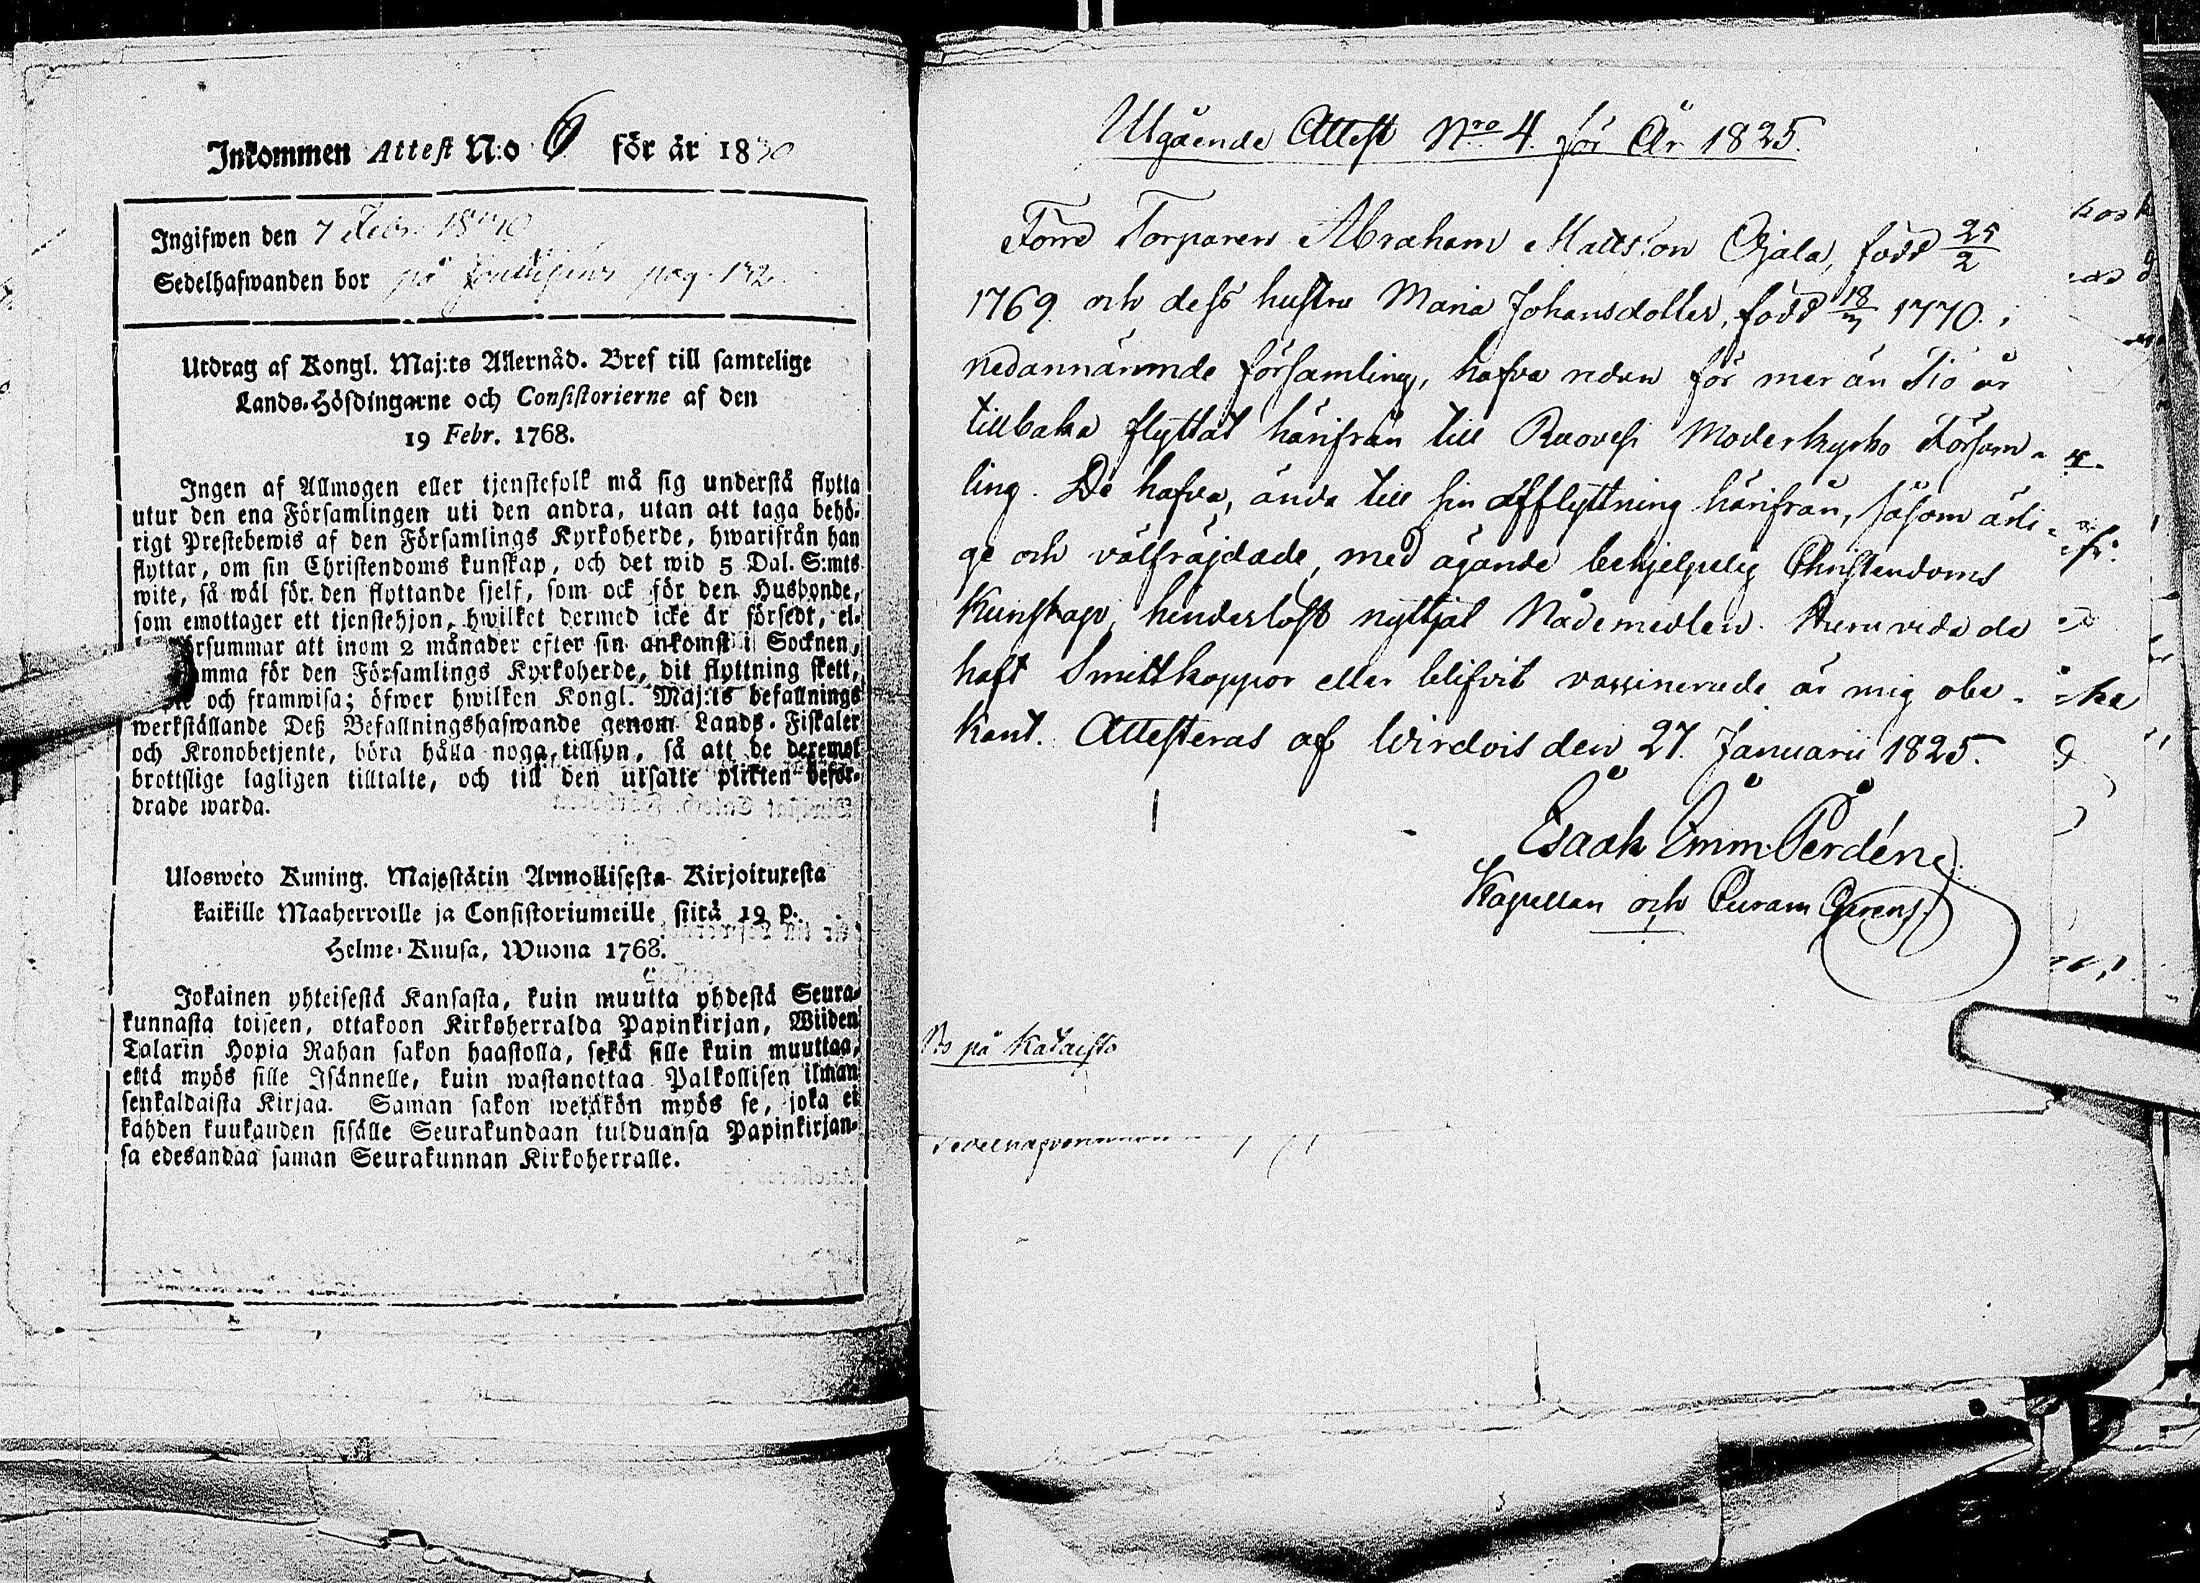 Inkommen Attest N:o 6 för år 1830
Ingifwen den 7 Febr. 1830
Sedelhafwanden bor på pag. 132.
Utdrag af Kongl. Maj:ts Allernåd. Bref till samtelige
Lands-Höfdingarne och Consistorierne af den
19 Febr. 1768.
Ingen af Allmogen eller tjenstefolk må sig understå flytta
utur den ena Församlingen uti den andra, utan att taga behö-
rigt Prestebewis af den Församlings Kyrkoherde, hwarifrån han
flyttar, om sin Christendoms kunskap, och det wid 5 Dal. S:mts
wite, så wäl för den flyttande sjelf, som ock för den Husbonde,
som emottager ett tjenstehjon, hwilket dermed icke är försedt, el-
rsummar att inom 2 månader efter sin ankomst i Socknen,
amma för den Församlings Kyrkoherde, dit flyttning skett,
och framwisa; öfwer hwilken Kongl. Maj:ts befallnings
werkställande Deß Befallningshafwande genom Lands-Fiskaler
och Kronobetjente, böra hålla noga tillsyn, så att de deremot
brottslige lagligen tilltalte, och till den utsatte plikten beför-
drade warda.
Ulosweto Kuning. Majestätin Armollisesta Kirjoituxesta
kaikille Maaherroille ja Consistoriumeille siitä 19 p.
Helme-Kuusa, Wuona 1768.
Jokainen yhteisestä Kansasta, kuin muutta yhdestä Seura-
kunnasta toiseen, ottakoon Kirkoherralda Papinkirjan, Wiiden
Talarin Hopia Rahan sakon haastolla, sekä sille kuin muuttaa,
että myös sille Isännelle, kuin wastanottaa Palkollisen ilman
senkaldaista Kirjaa. Saman sakon wetäkön myös se, joka ei
kahden kuukauden sisälle Seurakundaan tulduansa Papinkirjan-
sa edesandaa saman Seurakunnan Kirkoherralle.
Utgående Attest Nro 4. för År 1825.
Förre Torparen Abraham Mattsson Ojala, född 25/2
1769 och dess hustru Maria Johansdotter, född 18/7 1770. i
nedannämnde församling, hafva redan för mer än Tio år
tillbaka flyttat härifrån till Ruovesi Moderkyrko Försam-
ling. De hafva, ända till sin afflyttning härifrån, såsom ärli-
ge och välfräjdade, med ägande behjelpelig Christendoms
Kunskap, hinderlöst nyttjat Nådemedlen. Huruvida de
haft Smittkoppor eller blifvit vaccinerade är mig obe-
kant. Attesteras af Wirdois den 27. Januarii 1825.
Esaak Emm: Perdén
Kapellan och Curam Gerens.
Bo på Kataisto